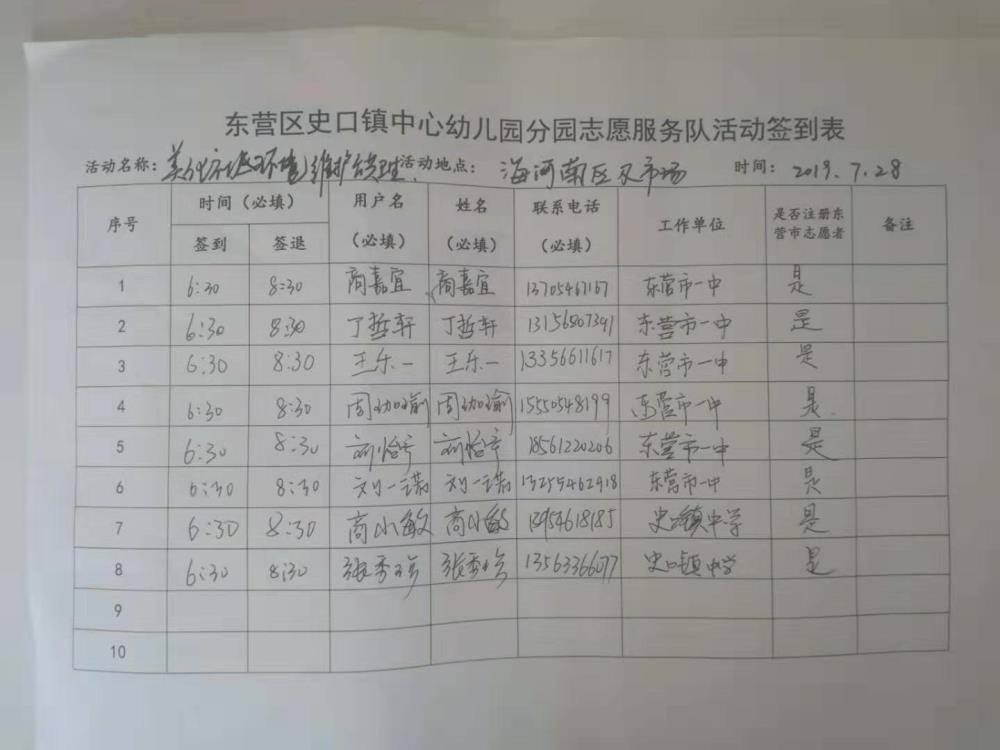 东营区史口镇中心幼儿园分园志愿服务队活动签到表
活动名称：美化社区环境，维护管理 活动地点：海河南区及市场 时间：2019.7.28
序号 时间（必填） 用户名（必填） 姓名（必填） 联系电话（必填） 工作单位 是否注册东营市志愿者 备注
签到 签退
1 6:30 8:30 商嘉宜 商嘉宜 13705467167 东营市一中 是
2 6:30 8:30 丁哲轩 丁哲轩 13156807391 东营市一中 是
3 6:30 8:30 王乐一 王乐一 13356611617 东营市一中 是
4 6:30 8:30 周珈瑜 周珈瑜 15550548199 东营市一中 是
5 6:30 8:30 刘怡 刘怡 18561220206 东营市一中 是
6 6:30 8:30 刘一诺 刘一诺 13255462918 东营市一中 是
7 6:30 8:30 商小敏 商小敏 13954618185 史口镇中学 是
8 6:30 8:30 张秀 张秀 13563366077 史口镇中学 是
9
10